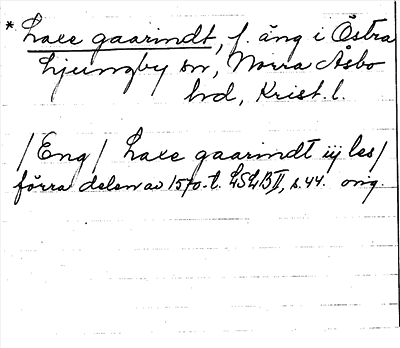 * Laxe gaarindt, f. äng i Östra
Ljungby sn, Norra Åsbo
hd, Krist. l.
/Eng/ Laxe gaarindt iij les/
förra delen av 1570-t. LSLB II, s. 44. orig.